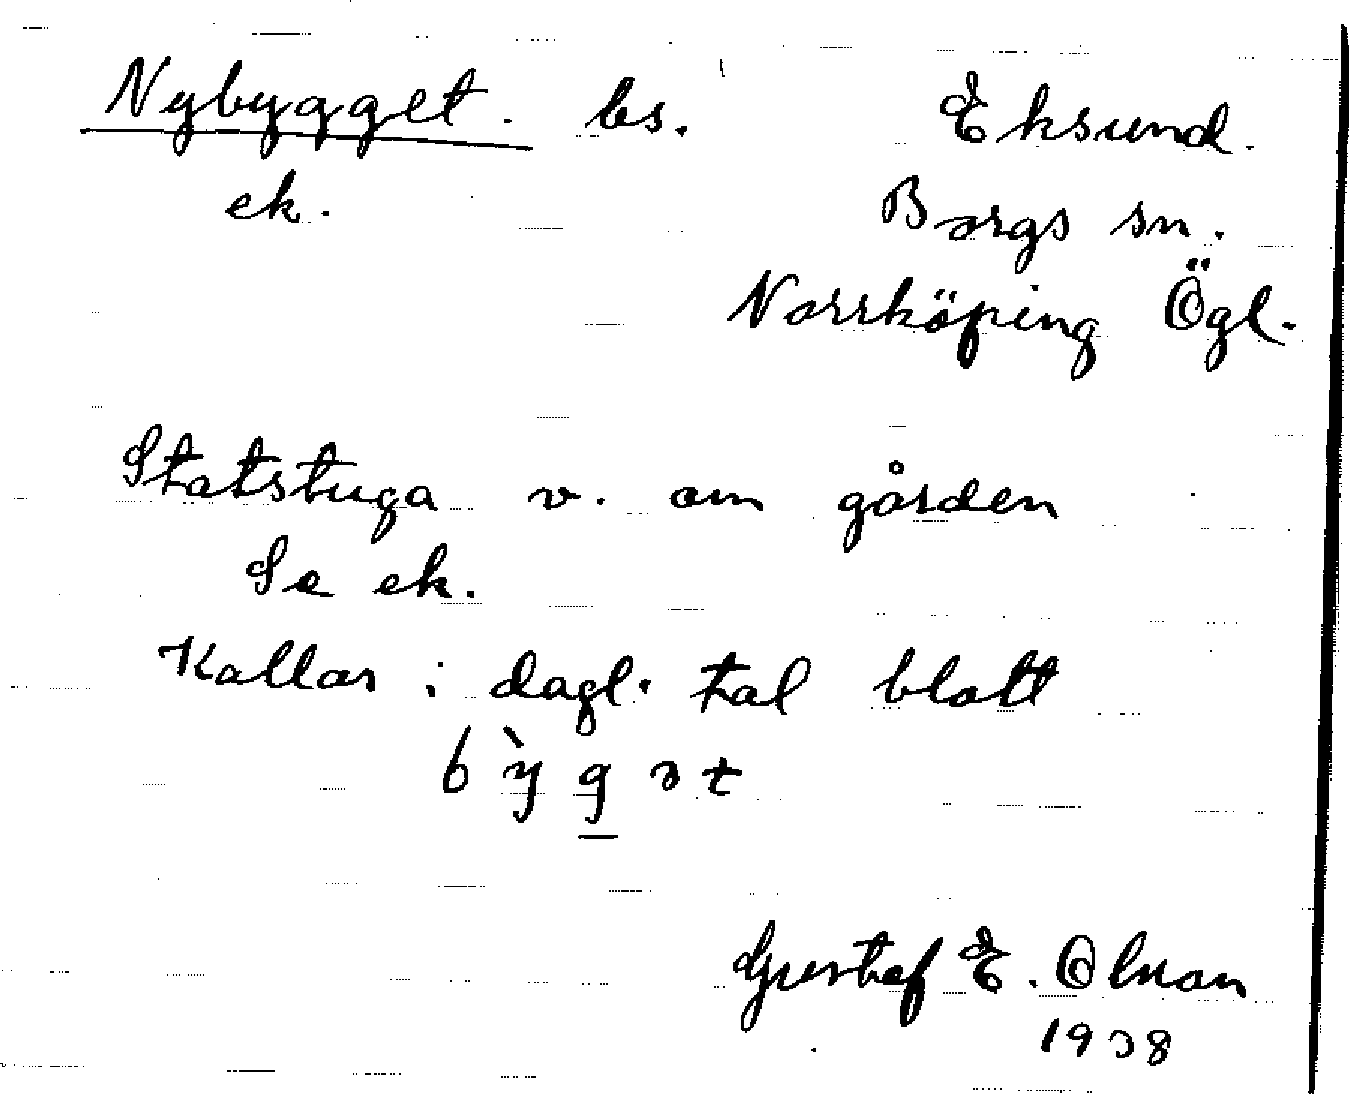 Nybygget. bs. Eksund.
ek. Borgs sn.
Norrköping Ögl.
Statstuga v. om gården
Se ek.
Kallas i dagl. tal blott
bỳgət
Gustaf E. Olsson
1938